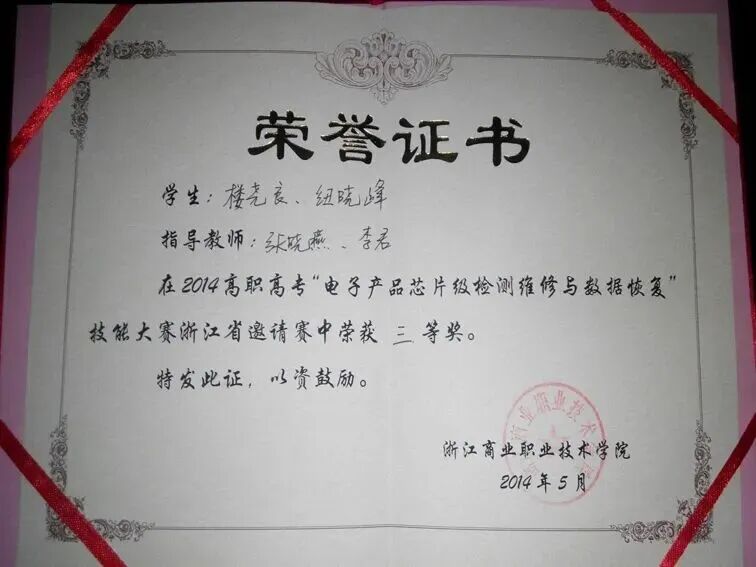 荣誉证书
学生：楼尧良、纽晓峰
指导教师：张晓燕、李君
在2014高职高专“电子产品芯片级检测维修与数据恢复”
技能大赛浙江省邀请赛中荣获 三 等奖。
特发此证，以资鼓励。
浙江商业职业技术学院
2014年5月